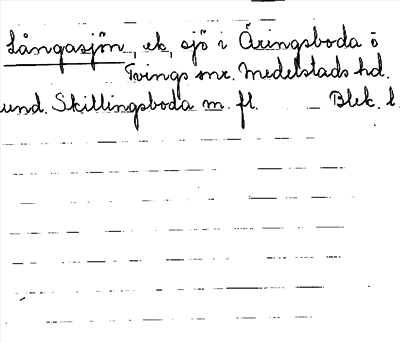 Långasjön, ek, sjö i Äringsboda ö
Tvings snr. Medelstads hd.
und. Skillingsboda m. fl. Blek. l.